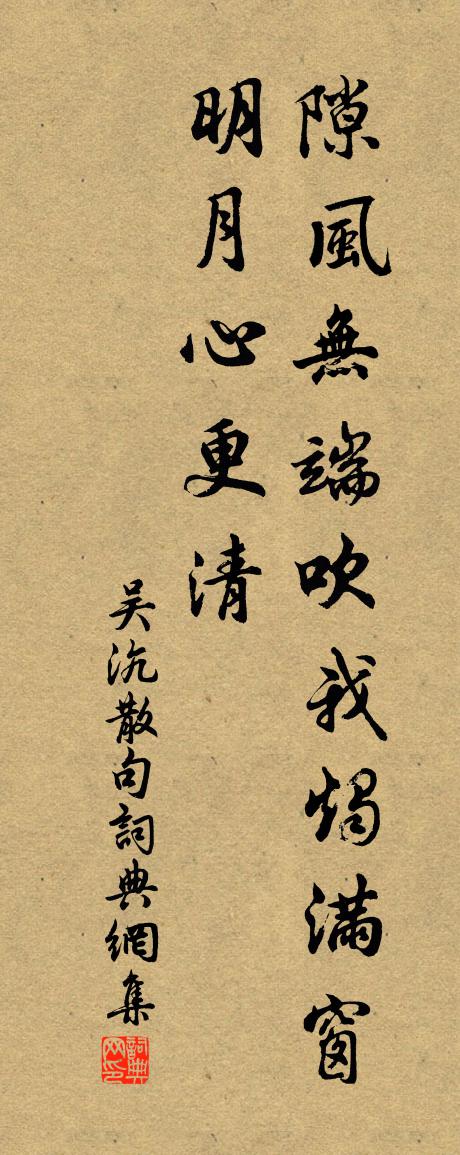 隙風無端吹我燭滿窗
明月心更清
吴沆散句詞典網集
詞典网印